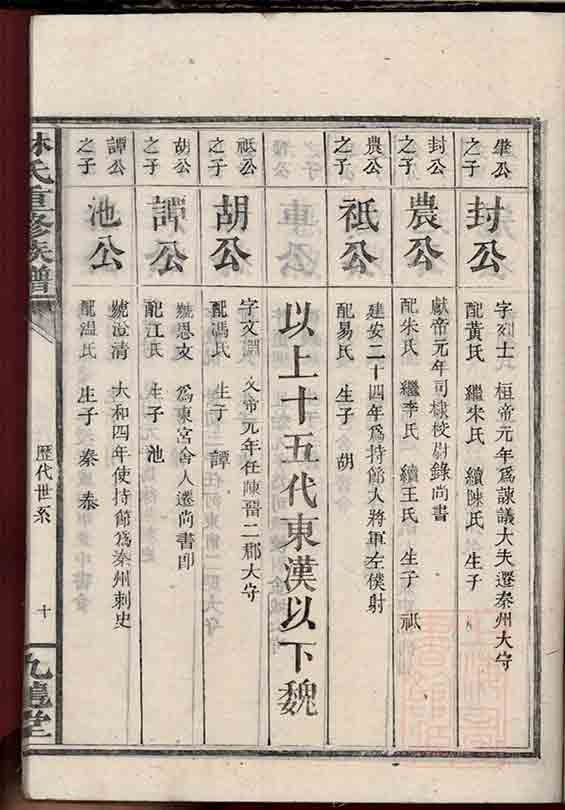 肇公之子
封公
字烈士 桓帝元年爲諫議大夫遷秦州太守
配黃氏 繼宋氏 續陳氏 生子
封公之子
農公
獻帝元年司隸校尉錄尚書
配朱氏 繼李氏 續王氏 生子 祇
農公之子
祇公
建安二十四年爲持節大將軍左僕射
配易氏 生子 胡
以上十五代東漢以下魏
祇公之子
胡公
字文淵 文帝元年任陳畱二郡太守
配馮氏 生子 譚
胡公之子
譚公
號思文 爲東宮舍人遷尚書郎
配江氏 生子 池
譚公之子
池公
號澄清 大和四年使持節爲秦州刺史
配温氏 生子 秦 泰
林氏重修族譜
歷代世系
十
九龍堂